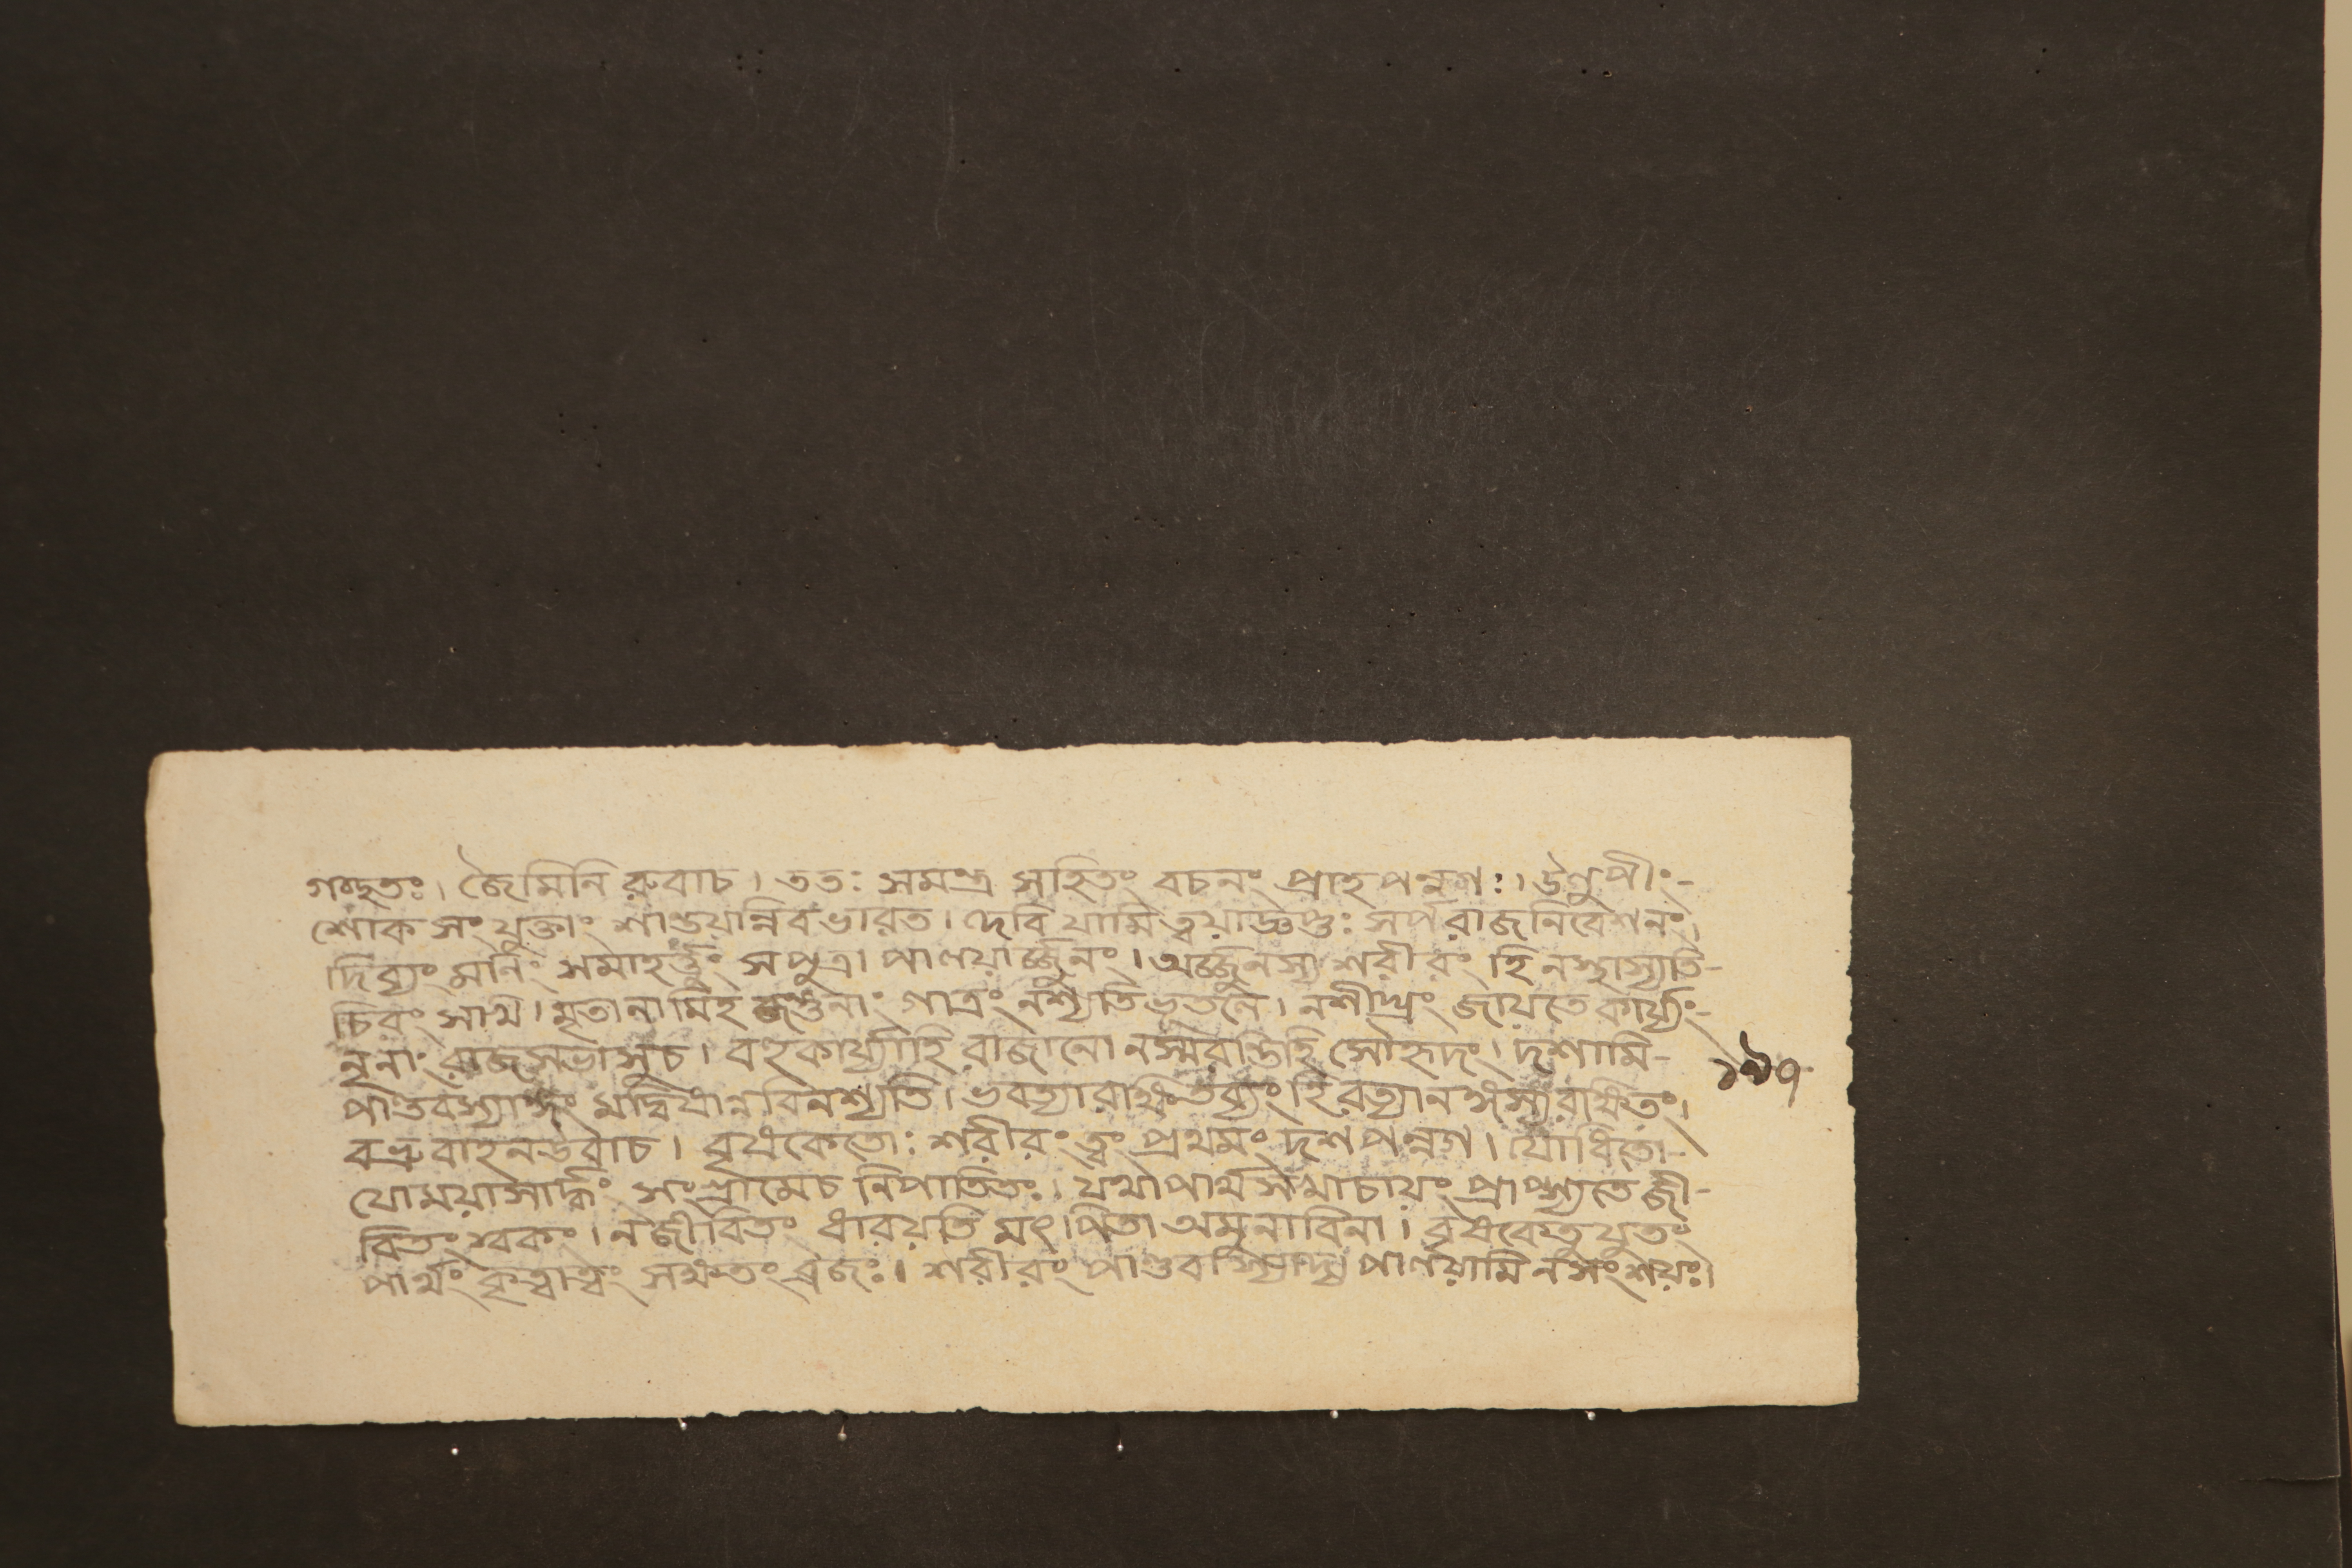 গচ্ছতঃ। জৈমিনি রুবাচ। ততঃ সমন্ত্র সহিতং বচনং প্রাহ পন্নগঃ। উলুপীং-
শোক সংযুক্তাং শান্তয়ন্নিব ভারত। দেবি যামি ত্বয়াজ্ঞপ্তঃ সর্পরাজনিবেশনং।
দিব্যং মনিং সমাহর্ত্তুং সপুত্রা পালয়ার্জ্জুনং। অর্জ্জুনস্য শরীরং হি নস্থাস্যতি-
চিরং সখি। মৃতানামিহ জন্তুনাং গাত্রং নশ্যতি ভূতলে। নশীঘ্রং জায়তে কার্য্যং-
নৃনাং রাজসভাসুচ। বহুকার্য্যাহি রাজানো নস্মরন্তিহি সৌহৃদং। দশামি-
পাণ্ডবস্যাঙ্গং মদ্বিষান্নবিনশ্যতি। ভবত্যা রক্ষিতব্যং হি
বভ্রুবাহনউবাচ। বৃষকেতোঃ শরীরং ত্বং প্রথমং দশ পন্নগ। যোধিতো-
যোময়াসার্দ্ধং সংগ্রামেচ নিপাতিতঃ। যথাপার্থসখাচায়ং প্রাপ্স্যতে জী-
বিতং স্বকং। নজীবিতং ধারয়তি মৎ পিতা অমুনাবিনা। বৃষকেতুযুতং
পার্থং কৃত্বাত্বং সক্ষতং ব্রজঃ। শরীরং পাণ্ডবস্যাদ্য পালয়ামি নসংশয়ঃ।
১৯৭